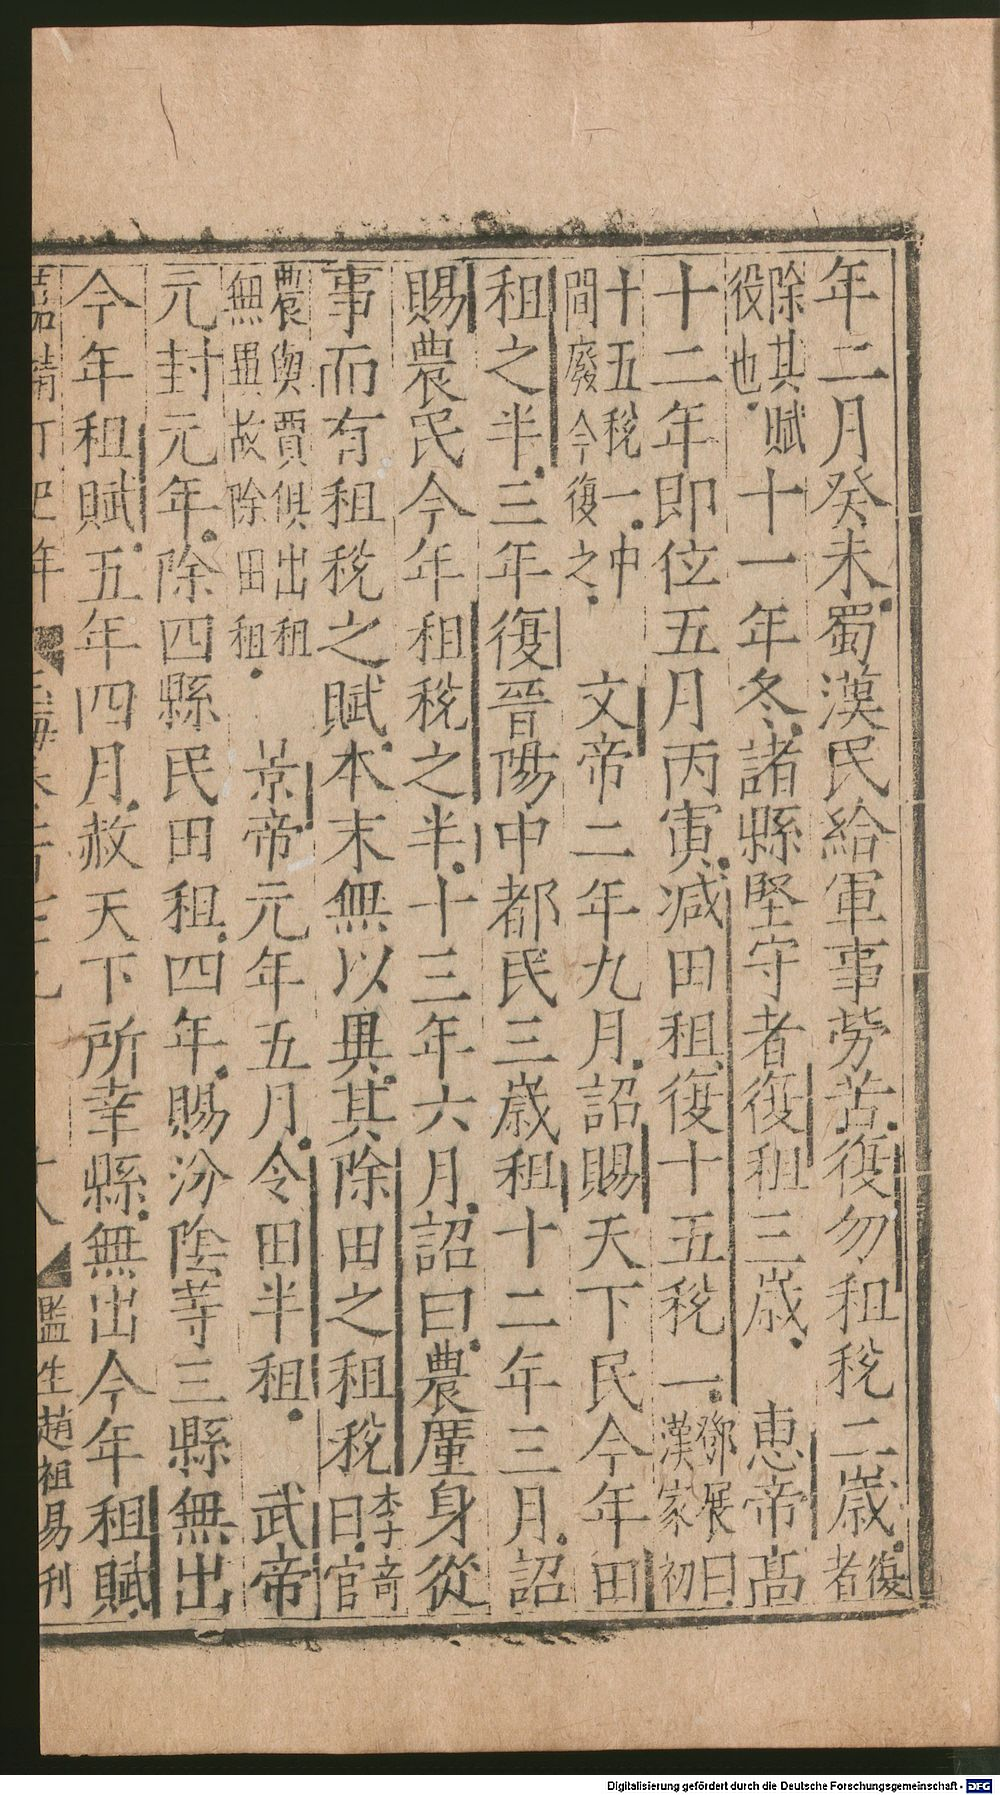 年二月癸未蜀漢民給軍事勞苦復勿租稅二歲復者
除其賦役也十一年冬諸縣堅守者復租三歲　惠帝高
十二年即位五月丙寅減田租復十五稅一鄧展曰漢家初
十五稅一中間廢今復之　文帝二年九月詔賜天下民今年田
租之半三年復晉陽中都民三歲租十二年三月詔
賜農民今年租稅之半十三年六月詔曰農廑身從
事而有租稅之賦本末無以異其除田之租稅李竒曰官
農與賈俱出租無異故除田租　景帝元年五月令田半租　武帝
元封元年除四縣民田租四年賜汾陰等三縣無出
今年租賦五年四月赦天下所幸縣無出今年租賦
年
監生趙祖易刊
Digitalisierung gefördert durch die Deutsche Forschungsgemeinschaft - DFG